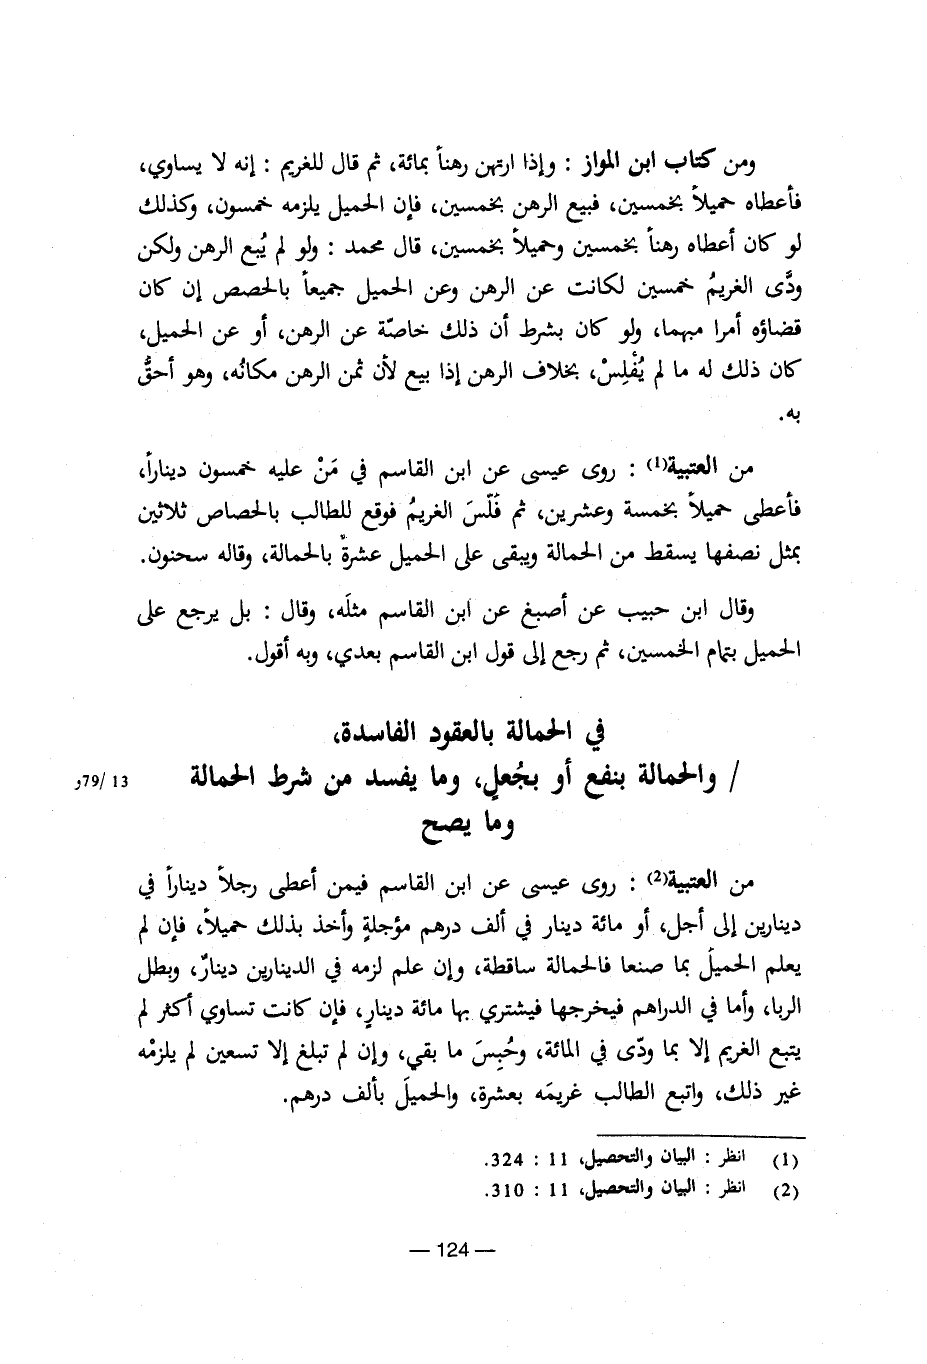 ومن كتاب ابن المواز : وإذا ارتهن رهناً بمائة، ثم قال للغريم : إنه لا يساوي،
فأعطاه حميلاً بخمسين، فبيع الرهن بخمسين، فإن الحميل يلزمه خمسون، وكذلك
لو كان أعطاه رهناً بخمسين وحميلاً بخمسين، قال محمد : ولو لم يُبع الرهن ولكن
ودَّى الغريمُ خمسين لكانت عن الرهن وعن الحميل جميعاً بالحصص إن كان
قضاؤه أمرا مبهما، ولو كان بشرط أن ذلك خاصّة عن الرهن، أو عن الحميل،
كان ذلك له ما لم يُفْلِسْ، بخلاف الرهن إذا بيع لأن ثمن الرهن مكانُه، وهو أحقُّ
به.
من العتبية(1) : روى عيسى عن ابن القاسم في مَنْ عليه خمسون ديناراً،
فأعطى حميلاً بخمسة وعشرين، ثم فَلّسَ الغريمُ فوقع للطالب بالحصاص ثلاثين
بمثل نصفها يسقط من الحمالة ويبقى على الحميل عشرةٌ بالحمالة، وقاله سحنون.
وقال ابن حبيب عن أصبغ عن ابن القاسم مثلَه، وقال : بل يرجع على
الحميل بتمام الخمسين، ثم رجع إلى قول ابن القاسم بعدي، وبه أقول.
في الحمالة بالعقود الفاسدة،
/ والحمالة بنفع أو بجُعلٍ، وما يفسد من شرط الحمالة
13 /79و
وما يصح
من العتبية(2) : روى عيسى عن ابن القاسم فيمن أعطى رجلاً ديناراً في
دينارين إلى أجل، أو مائة دينار في ألف درهم مؤجلةٍ وأخذ بذلك حميلاً، فإن لم
يعلم الحميلُ بما صنعا فالحمالة ساقطة، وإن علم لزمه في الدينارين دينارٌ، وبطل
الربا، وأما في الدراهم فيخرجها فيشتري بها مائة دينارٍ، فإن كانت تساوي أكثر لم
يتبع الغريم إلا بما ودّى في المائة، وحُبِسَ ما بقي، وإن لم تبلغ إلا تسعين لم يلزمْه
غير ذلك، واتبع الطالب غريمَه بعشرة، والحميلَ بألف درهم.
(1) انظر : البيان والتحصيل، 11 : 324.
(2) انظر : البيان والتحصيل، 11 : 310.
— 124 —